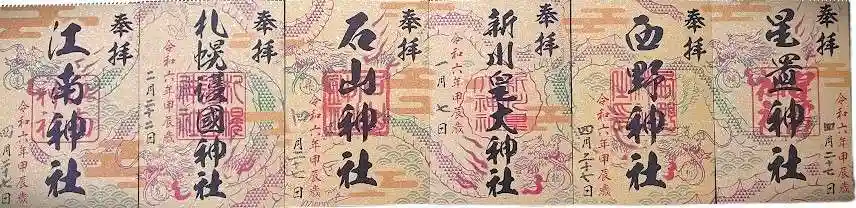 奉拝
星置神社
令和六年甲辰歳
四月二十七日
奉拝
西野神社
令和六年甲辰歳
四月二十七日
奉拝
新川皇大神社
令和六年甲辰歳
一月七日
奉拝
石山神社
令和六年甲辰歳
奉拝
札幌護國神社
令和六年甲辰歳
二月二十二日
奉拝
江南神社
令和六年甲辰歳
四月二十七日